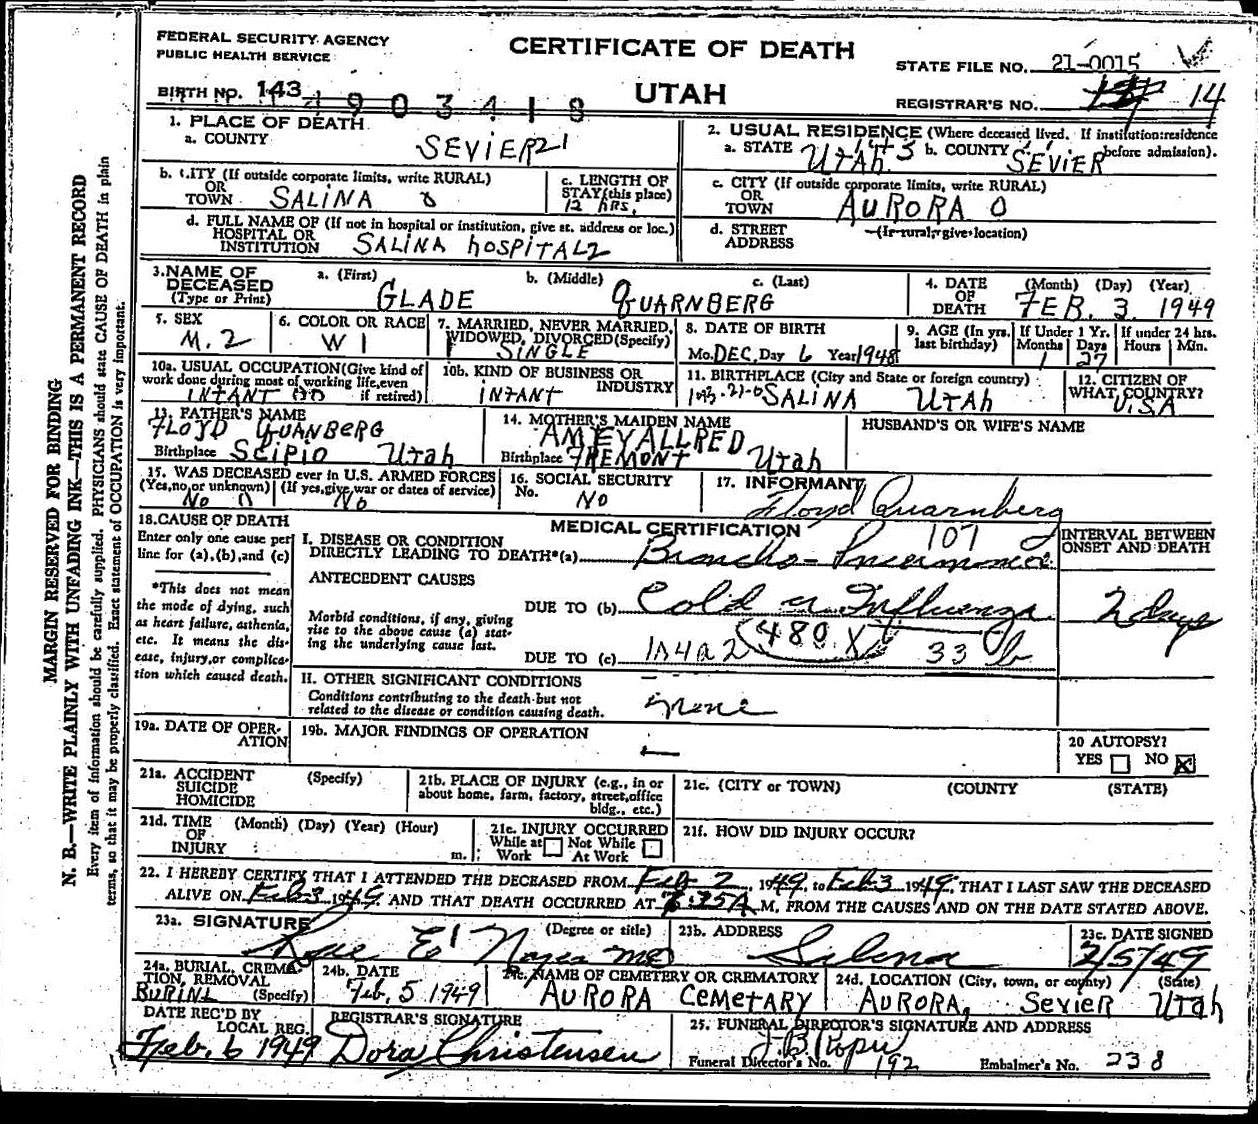 FEDERAL SECURITY AGENCY
PUBLIC HEALTH SERVICE
CERTIFICATE OF DEATH
UTAH
STATE FILE NO. 21-0015
BIRTH NO. 143
1903418
REGISTRAR'S NO. 14
1. PLACE OF DEATH
a. COUNTY SEVIER 21
b. CITY (If outside corporate limits, write RURAL)
OR
TOWN SALINA 0
c. LENGTH OF
STAY (this place)
12 hrs.
d. FULL NAME OF (If not in hospital or institution, give st. address or loc.)
HOSPITAL OR
INSTITUTION SALINA hOSPITAL 2
2. USUAL RESIDENCE (Where deceased lived. If institution: residence
before admission).
a. STATE UTAH 143 b. COUNTY SEVIER
c. CITY (If outside corporate limits, write RURAL)
OR
TOWN AURORA 0
d. STREET (If rural, give location)
ADDRESS
3. NAME OF
DECEASED
(Type or Print)
a. (First) GLADE
b. (Middle)
c. (Last) QUARNBERG
4. DATE
OF
DEATH
(Month) (Day) (Year)
FEB. 3. 1949
5. SEX
M. 2
6. COLOR OR RACE
W 1
7. MARRIED, NEVER MARRIED,
WIDOWED, DIVORCED (Specify)
SINGLE
8. DATE OF BIRTH
Mo. DEC. Day 6 Year 1948
9. AGE (In yrs.
last birthday)
If Under 1 Yr.
Months Days
1 27
If under 24 hrs.
Hours Min.
10a. USUAL OCCUPATION (Give kind of
work done during most of working life, even
if retired)
INFANT
10b. KIND OF BUSINESS OR
INDUSTRY
INFANT
11. BIRTHPLACE (City and State or foreign country)
SALINA UTAH
12. CITIZEN OF
WHAT COUNTRY?
U.SA
13. FATHER'S NAME
FLOYD QUANBERG
Birthplace SCIPIO UTAH
14. MOTHER'S MAIDEN NAME
AMEY ALLRED
Birthplace FREMONT UTAH
HUSBAND'S OR WIFE'S NAME
15. WAS DECEASED ever in U.S. ARMED FORCES
(Yes, no, or unknown) (If yes, give war or dates of service)
No 0 No
16. SOCIAL SECURITY
No. NO
17. INFORMANT
Floyd Quarnberg
18. CAUSE OF DEATH
Enter only one cause per
line for (a), (b), and (c)
*This does not mean
the mode of dying, such
as heart failure, asthenia,
etc. It means the dis-
ease, injury, or complica-
tion which caused death.
MEDICAL CERTIFICATION
107
I. DISEASE OR CONDITION
DIRECTLY LEADING TO DEATH*(a) Broncho-Pneumonia
ANTECEDENT CAUSES
DUE TO (b) Cold or Influenza
Morbid conditions, if any, giving
rise to the above cause (a) stat-
ing the underlying cause last.
DUE TO (c) 480 X 33 b
INTERVAL BETWEEN
ONSET AND DEATH
2 days
II. OTHER SIGNIFICANT CONDITIONS
Conditions contributing to the death but not
related to the disease or condition causing death.
none
19a. DATE OF OPER-
ATION
19b. MAJOR FINDINGS OF OPERATION
20 AUTOPSY?
YES NO X
21a. ACCIDENT
SUICIDE
HOMICIDE
(Specify)
21b. PLACE OF INJURY (e.g., in or
about home, farm, factory, street, office
bldg., etc.)
21c. (CITY or TOWN) (COUNTY) (STATE)
21d. TIME (Month) (Day) (Year) (Hour)
OF
INJURY m.
21e. INJURY OCCURRED
While at Work
Not While At Work
21f. HOW DID INJURY OCCUR?
22. I HEREBY CERTIFY THAT I ATTENDED THE DECEASED FROM Feb 2, 1949, to Feb 3 1949, THAT I LAST SAW THE DECEASED
ALIVE ON Feb 3 1949 AND THAT DEATH OCCURRED AT 25 A M. FROM THE CAUSES AND ON THE DATE STATED ABOVE.
23a. SIGNATURE (Degree or title)
Rae E Noyes MD
23b. ADDRESS
Salina
23c. DATE SIGNED
2/5/49
24a. BURIAL, CREMA-
TION, REMOVAL
(Specify)
BURIAL
24b. DATE
Feb, 5 1949
24c. NAME OF CEMETERY OR CREMATORY
AURORA CEMETARY
24d. LOCATION (City, town, or county) (State)
AURORA, SEVIER UTAH
DATE REC'D BY
LOCAL REG.
Feb. 6 1949
REGISTRAR'S SIGNATURE
Dora Christensen
25. FUNERAL DIRECTOR'S SIGNATURE AND ADDRESS
Funeral Director's No. 192 Embalmer's No. 238
MARGIN RESERVED FOR BINDING
N. B.—WRITE PLAINLY WITH UNFADING INK—THIS IS A PERMANENT RECORD
Every item of information should be carefully supplied. PHYSICIANS should state CAUSE OF DEATH in plain
terms, so that it may be properly classified. Exact statement of OCCUPATION is very important.